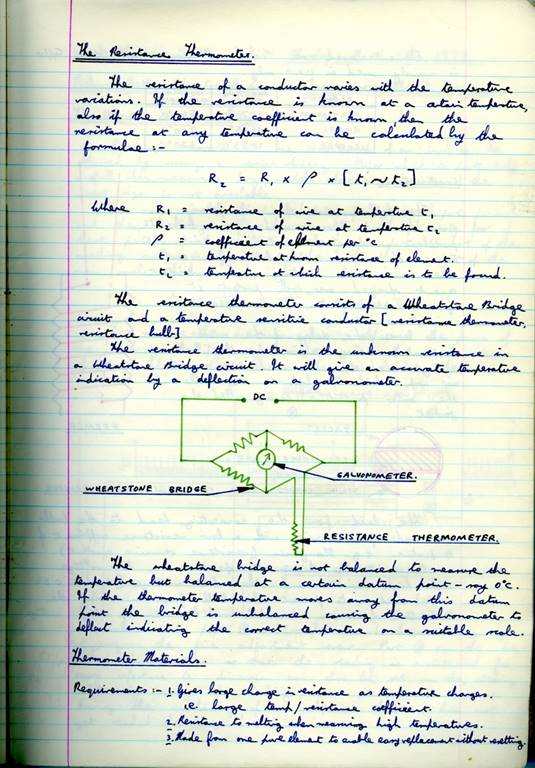 The Resistance Thermometer.
The resistance of a conductor varies with the temperature
variations. If the resistance is known at a certain temperature,
also if the temperature coefficient is known, then the
resistance at any temperature can be calculated by the
formulae :-
R₂ = R₁ x ρ x [t₁ ~ t₂]
Where R₁ = resistance of wire at temperature t₁
R₂ = resistance of wire at temperature t₂
ρ = coefficient of element per °c
t₁ = temperature at known resistance of element.
t₂ = temperature at which resistance is to be found.
The resistance thermometer consists of a Wheatstone Bridge
circuit and a temperature sensitive conductor [resistance thermometer,
resistance bulb]
The resistance thermometer is the unknown resistance in
a Wheatstone Bridge circuit. It will give an accurate temperature
indication by a deflection on a galvonometer.
DC
GALVONOMETER.
WHEATSTONE BRIDGE
RESISTANCE THERMOMETER.
The wheatstone bridge is not balanced to measure the
temperature but balanced at a certain datum point - say 0°c.
If the thermometer temperature moves away from this datum
point the bridge is unbalanced causing the galvonometer to
deflect indicating the correct temperature on a suitable scale.
Thermometer Materials.
Requirements :- 1. Gives large change in resistance as temperature changes.
i.e. large temp/resistance coefficient.
2. Resistance to melting when measuring high temperatures.
3. Made from one pure element to enable easy replacement without resetting.